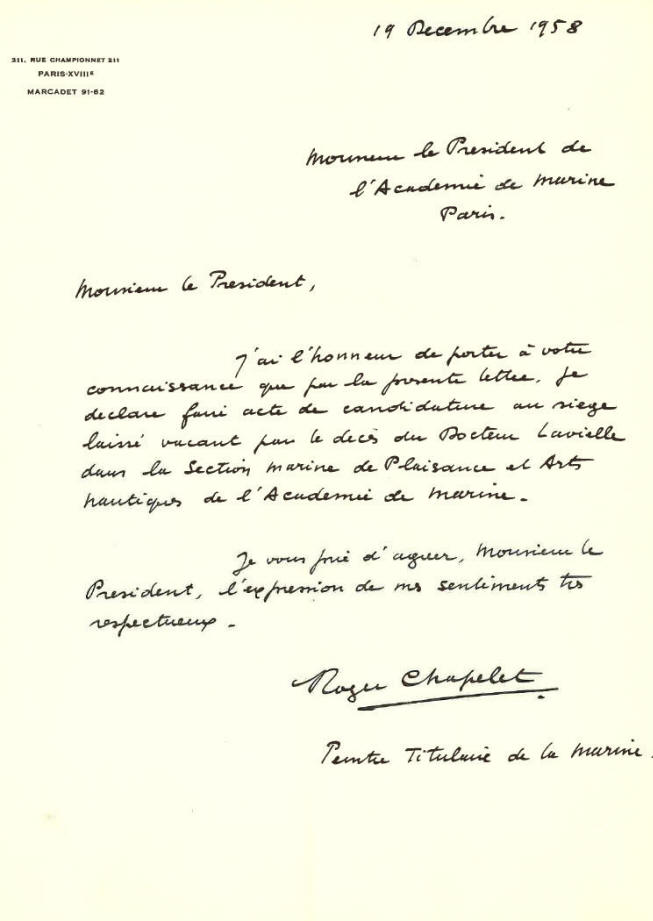 19 Decembre 1958
211, RUE CHAMPIONNET 211
PARIS-XVIIIE
MARCADET 91-62
Monsieur le President de
l'Academie de Marine
Paris.
Monsieur le President,
J'ai l'honneur de porter à votre
connaissance que par la presente lettre, je
declare faire acte de candidature au siege
laissé vacant par le decès du Docteur Lavielle
dans la Section Marine de Plaisance et Arts
nautiques de l'Academie de Marine.
Je vous prie d'agreer, Monsieur le
President, l'expression de mes sentiments très
respectueux.
Roger Chapelet
Peintre Titulaire de la Marine.